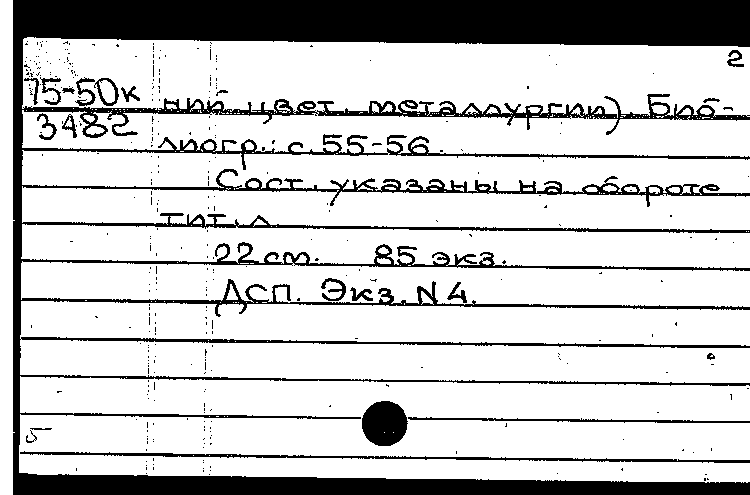 2
75-50к ний цвет. металлургии). Биб-
3482 лиогр.: с. 55-56.
Сост. указаны на обороте
тит. л.
22 см. 85 экз.
ДСП. Экз. N 4.
5